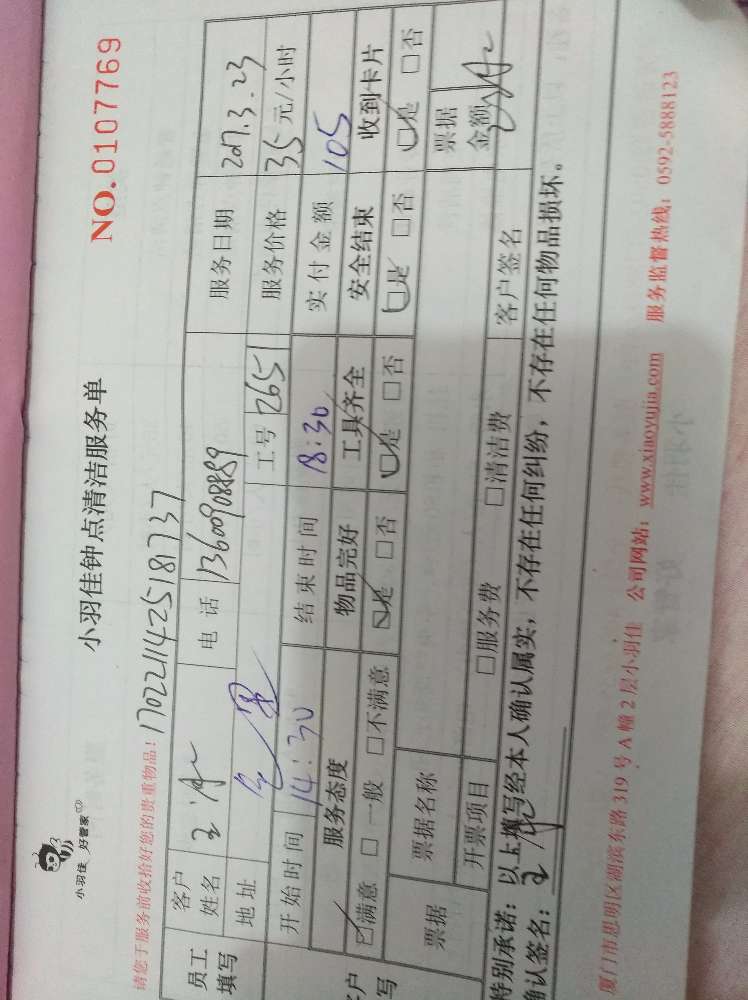 小羽佳 好管家
小羽佳钟点清洁服务单
NO.0107769
请您于服务前收拾好您的贵重物品! 1702211425181737
员工填写 客户姓名 电话 13600908889 服务日期 2017.3.23
地址 工号 2651 服务价格 35元/小时
开始时间 14:30 结束时间 18:30 实付金额 105
服务态度 物品完好 工具齐全 安全结束 收到卡片
☑满意 □一般 □不满意 ☑是 □否 ☑是 □否 ☑是 □否 ☑是 □否
票据 票据名称 票据金额
开票项目 □服务费 □清洁费 客户签名
特别承诺:以上填写经本人确认属实,不存在任何纠纷,不存在任何物品损坏。
确认签名:
厦门市思明区湖滨东路319号A幢2层小羽佳 公司网站:www.xiaoyujia.com 服务监督热线:0592-5888123